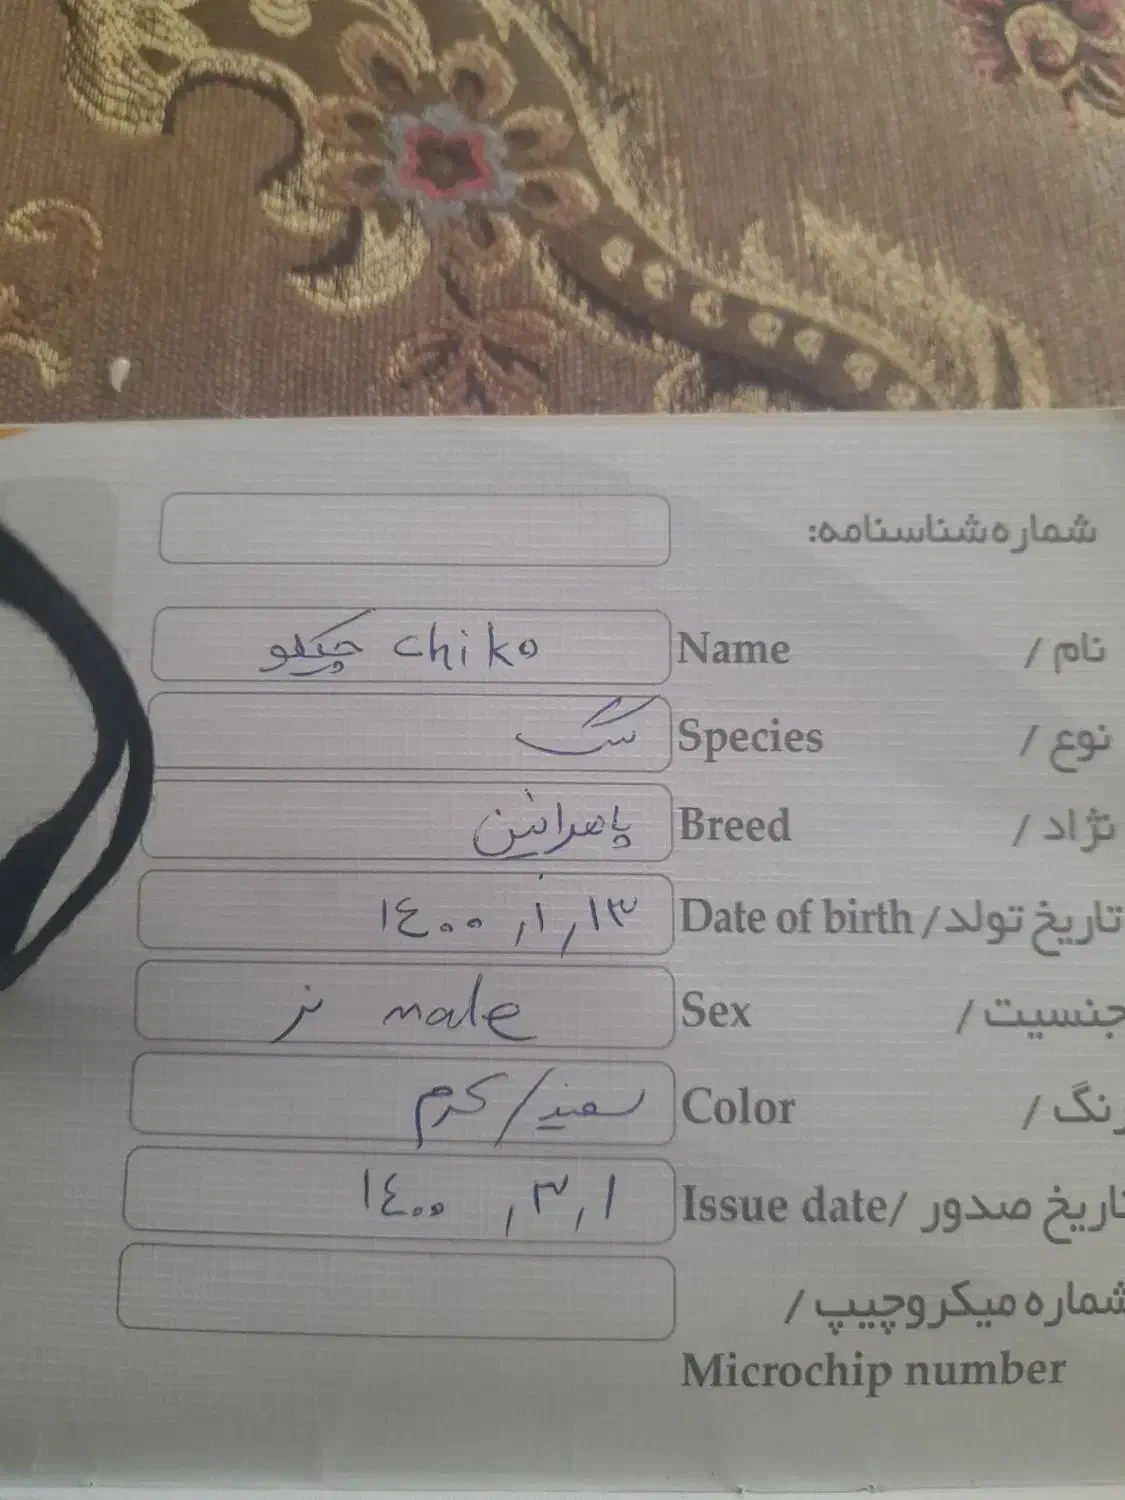 شماره شناسنامه:
نام / Name چیکو chiko
نوع / Species سگ
نژاد / Breed پامرانین
تاریخ تولد / Date of birth ۱۳ / ۱ / ۱۴۰۰
جنسیت / Sex male نر
رنگ / Color سفید / کرم
تاریخ صدور / Issue date ۱ / ۳ / ۱۴۰۰
شماره میکروچیپ /
Microchip number